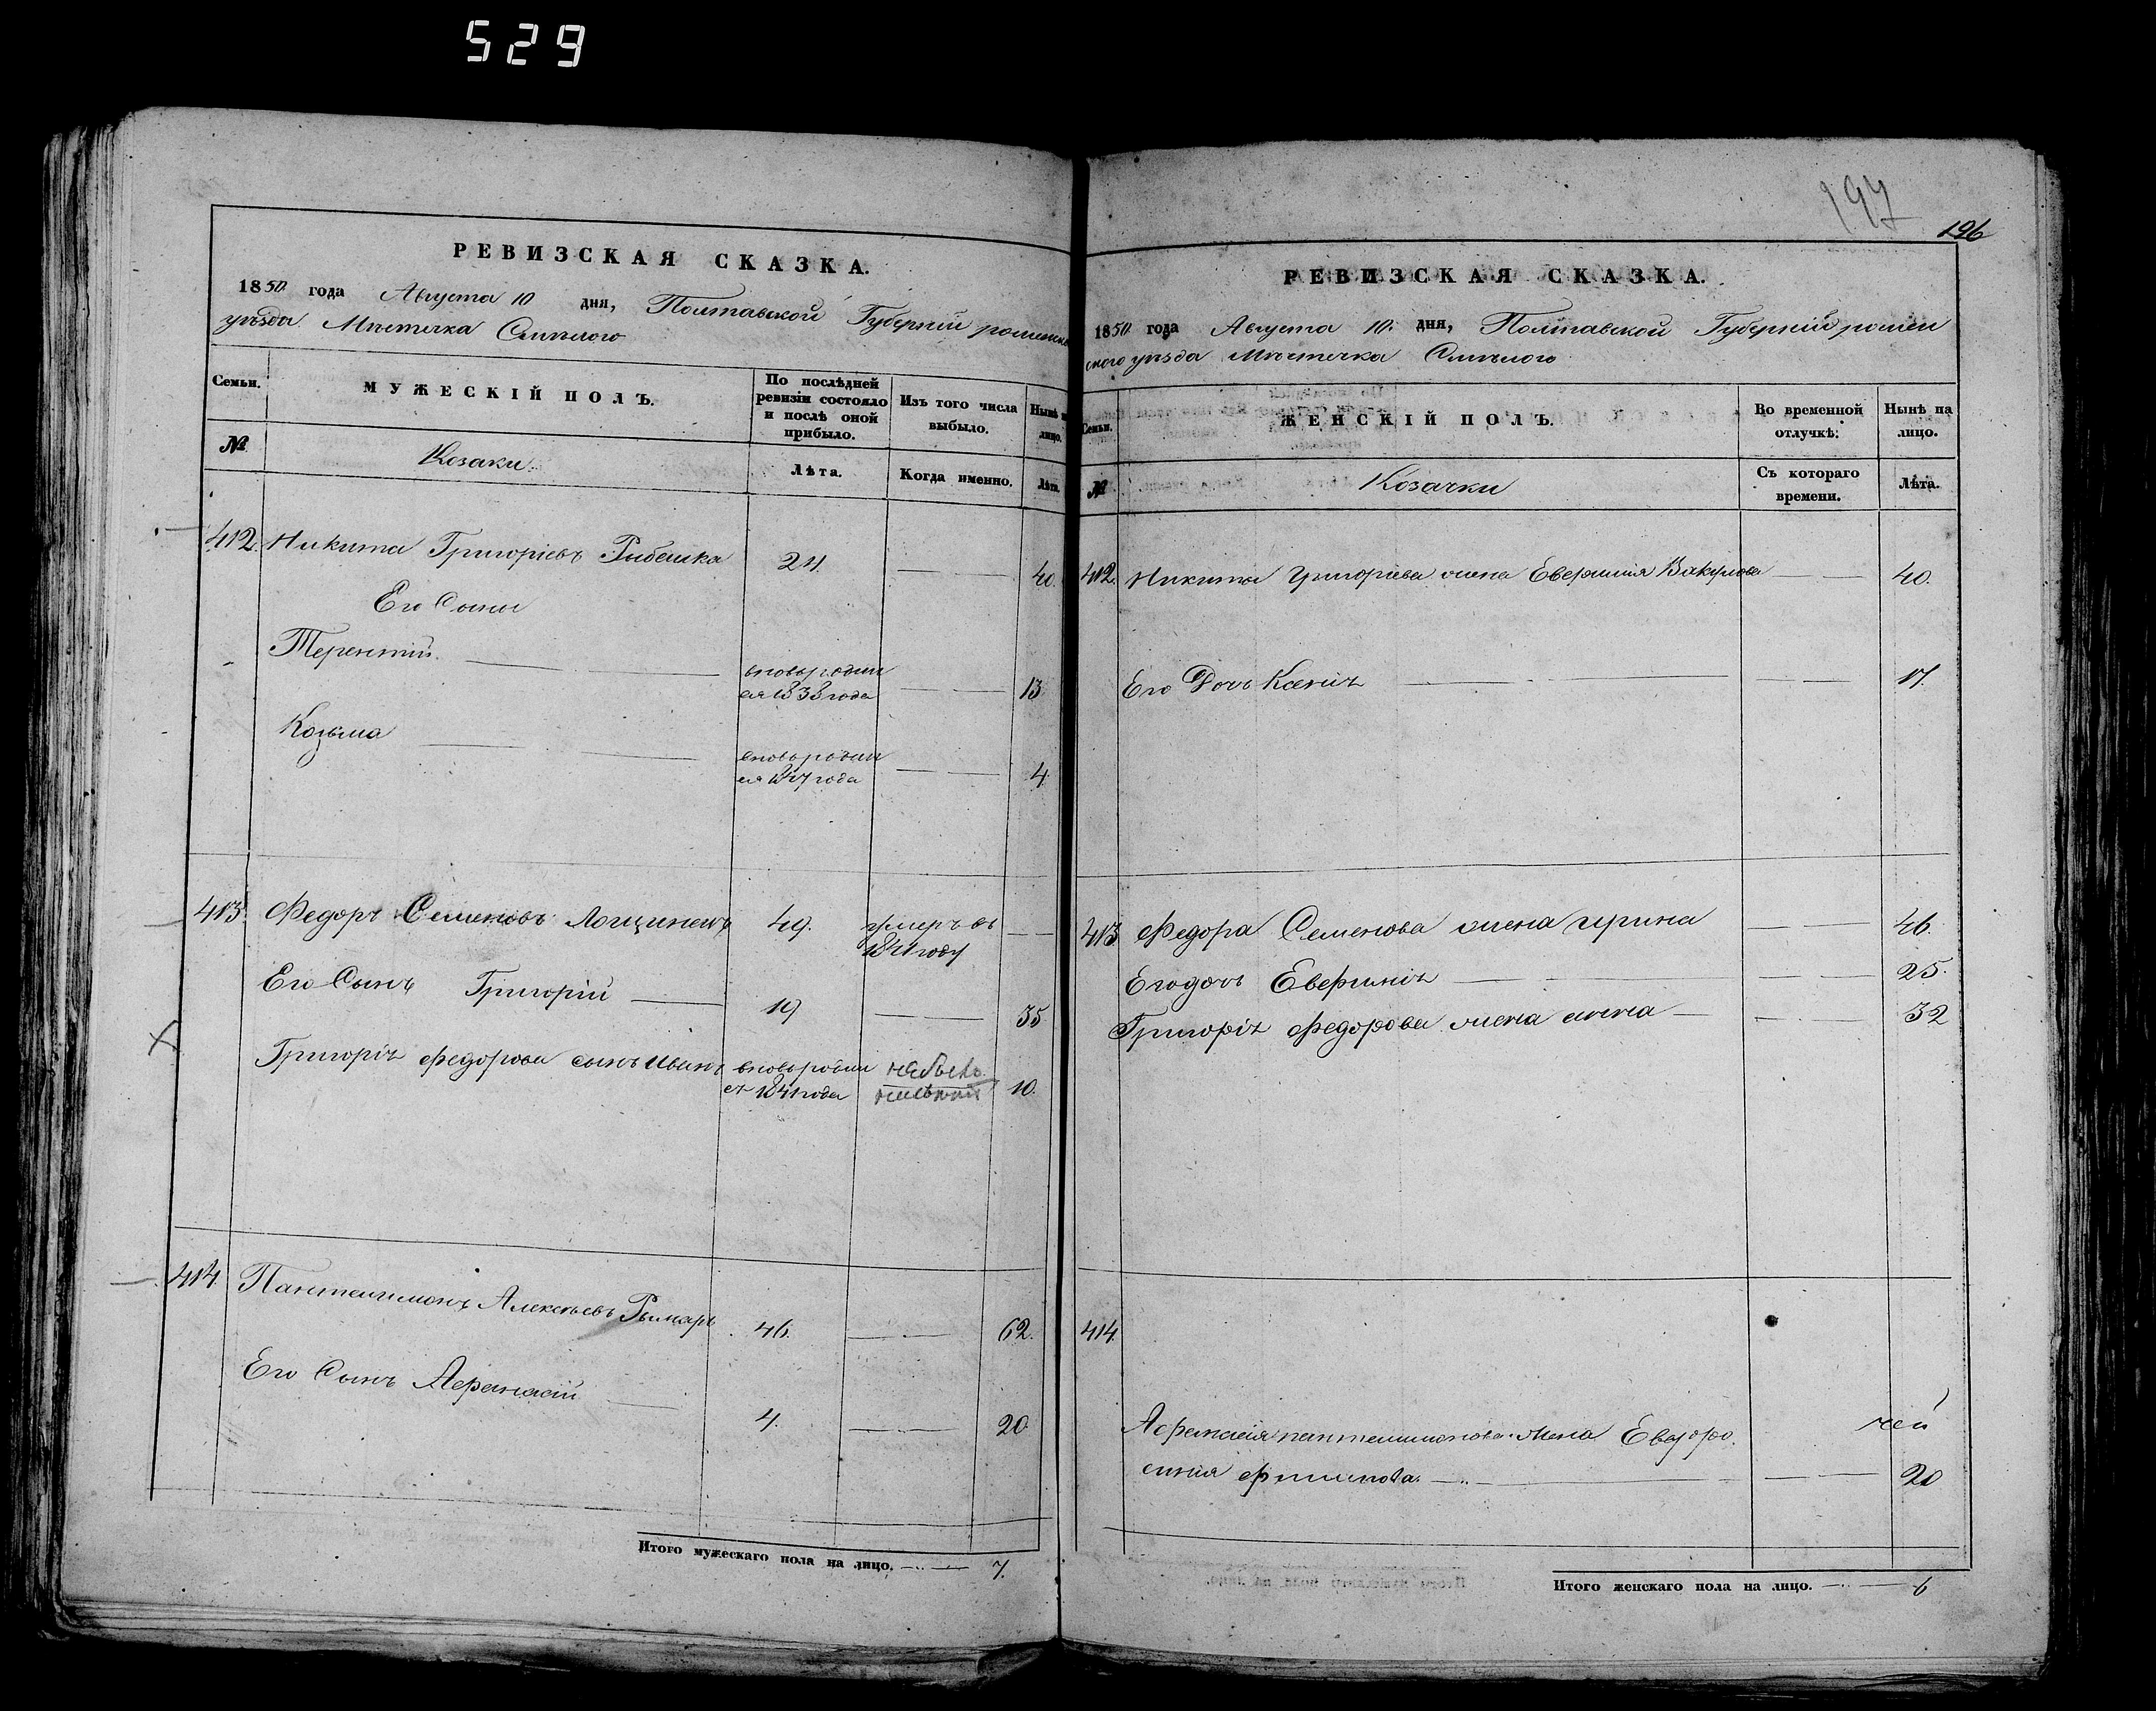 529
РЕВИЗСКАЯ СКАЗКА.
1850 года Августа 10 дня, Полтавской Губерніи роменско
уѣзда Мѣстечка Смѣлого
Семьи.
МУЖЕСКІЙ ПОЛЪ.
По послѣдней ревизіи состояло и послѣ оной прибыло.
Изъ того числа выбыло.
Нынѣ на лицо.
№
Козаки.
Лѣта.
Когда именно.
Лѣта.
412. Никита Григоріевъ 24. 40.
Его Сыны
Терентій вновь родил
ся 1838 года 13
Козьма вновь родил
ся 1847 года 4.
413. Федоръ Семеновъ 49. умеръ въ
1841 году
Его Сынъ Григорій 19 35
Григорія Федорова сынъ Иванъ вновь родил
ся 1841 года 10.
414. Пантелимонъ Алексѣевъ Рымарь 46. 62.
Его Сынъ Афанасій 4. 20
Итого мужескаго пола на лицо. 7.
197
196
РЕВИЗСКАЯ СКАЗКА.
1850 года Августа 10. дня, Полтавской Губерніи ромен
ского уѣзда Мѣстечка Смѣлого
Семьи.
ЖЕНСКІЙ ПОЛЪ.
Во временной отлучкѣ.
Нынѣ на лицо.
№
Козачки
Съ котораго времени.
Лѣта.
412. Никиты Григоріева жена Евфимія 40.
Его Дочь Ксенія 17.
413 Федора Семенова жена Ирина 46.
Его дочь Евфимія 25.
Григорія Федорова жена 32
414.
Афанасія Пантелимонова жена Евфро
синія 20
Итого женскаго пола на лицо. 6